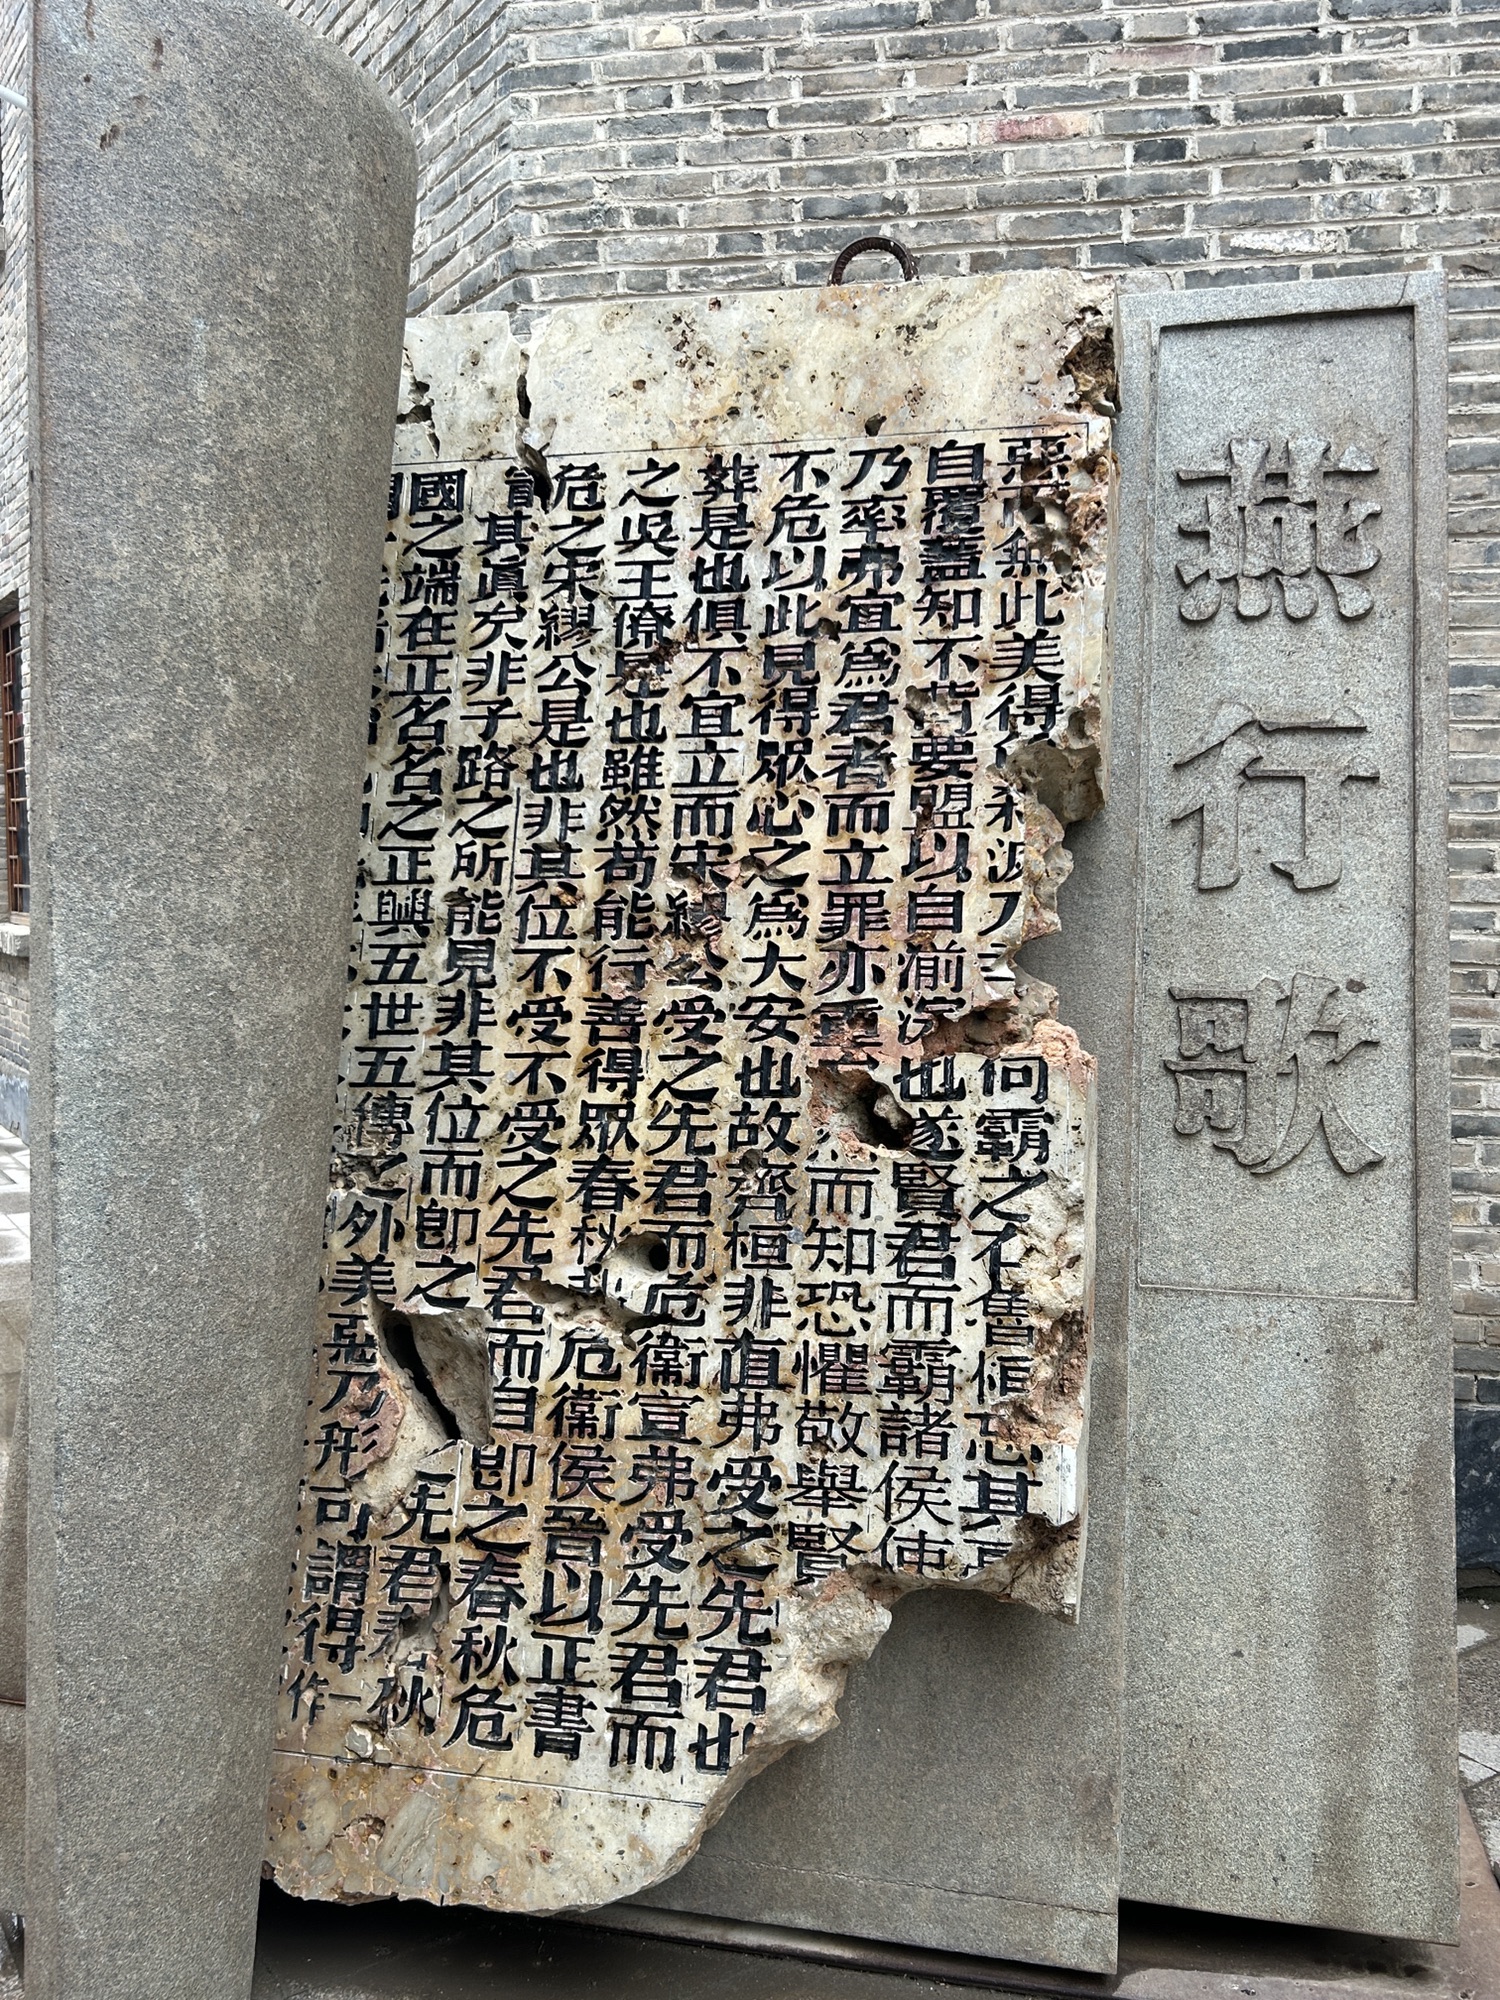 燕行歌
惡無此美得霸之舊忘其
自覆蓋知不背要盟以自湔浣也遂賢君而霸諸侯使
乃率弗宜爲君者而立罪亦重而知恐懼敬舉賢
不危以此見得眾心之爲大安也故齊桓非直弗受之先君也
葬是也俱不宜立而宋繆公受之先君而危衞宣弗受先君而
之吳王僚是也雖然苟能行善得眾春秋危衞侯晉以正書
危之宋繆公是也非其位不受不受之先君而自卽之春秋危
其眞矣非子路之所能見非其位而卽之先君春秋
國之端在正名名之正興五世五傳之外美惡乃形可謂得